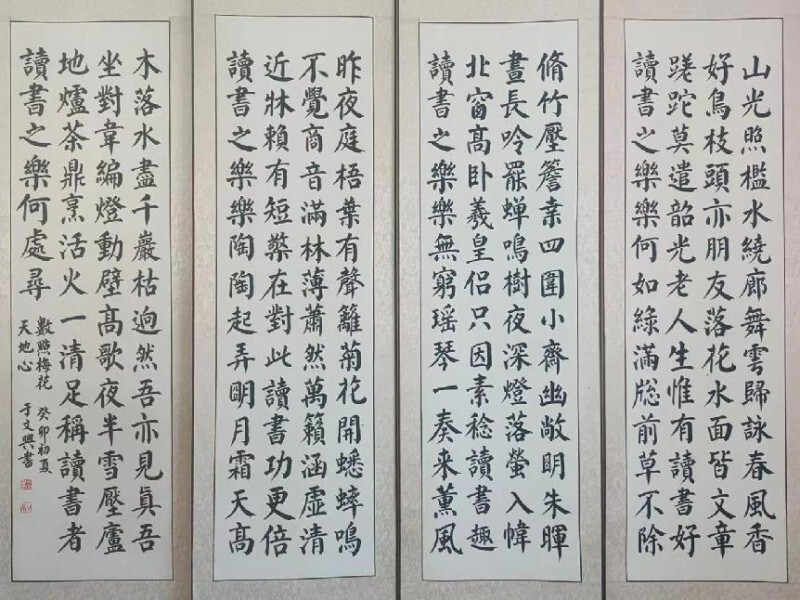 山光照檻水繞廊舞雲歸詠春風香
好鳥枝頭亦朋友落花水面皆文章
蹉跎莫遣韶光老人生惟有讀書好
讀書之樂樂何如綠滿牕前草不除
脩竹壓簷桒四圍小齋幽敞眀朱暉
晝長吟罷蟬鳴樹夜深燈落螢入幃
北窗高卧羲皇侶只因素稔讀書趣
讀書之樂樂無窮瑤琴一奏来薰風
昨夜庭梧葉有聲籬菊花開蟋蟀鳴
不覺商音滿林薄蕭然萬籟涵虛清
近牀賴有短檠在對此讀書功更倍
讀書之樂樂陶陶起弄眀月霜天高
木落水盡千巖枯迥然吾亦見真吾
坐對韋編燈動壁高歌夜半雪壓廬
地爐茶鼎烹活火一清足稱讀書者
讀書之樂何處尋
數㸃梅花 癸卯初夏
天地心 于文興書